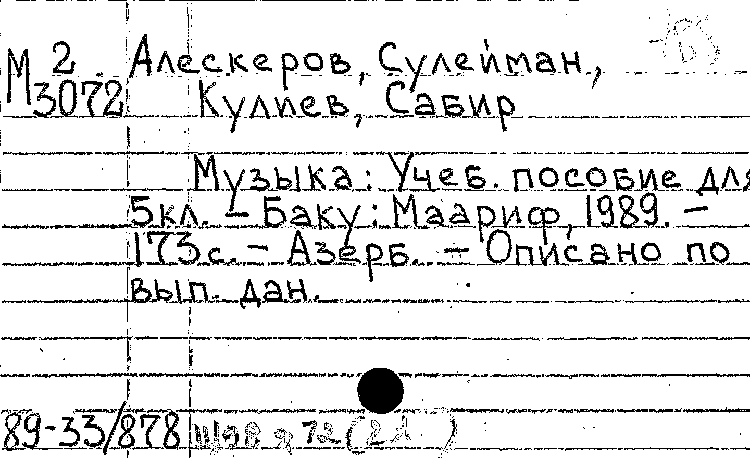 М 2 Алескеров, Сулейман,
3072 Кулиев, Сабир
Музыка: Учеб. пособие для
5кл. – Баку: Маариф, 1989. –
173с. – Азерб. – Описано по
вып. дан.
89-33/878 Щ98я72(2